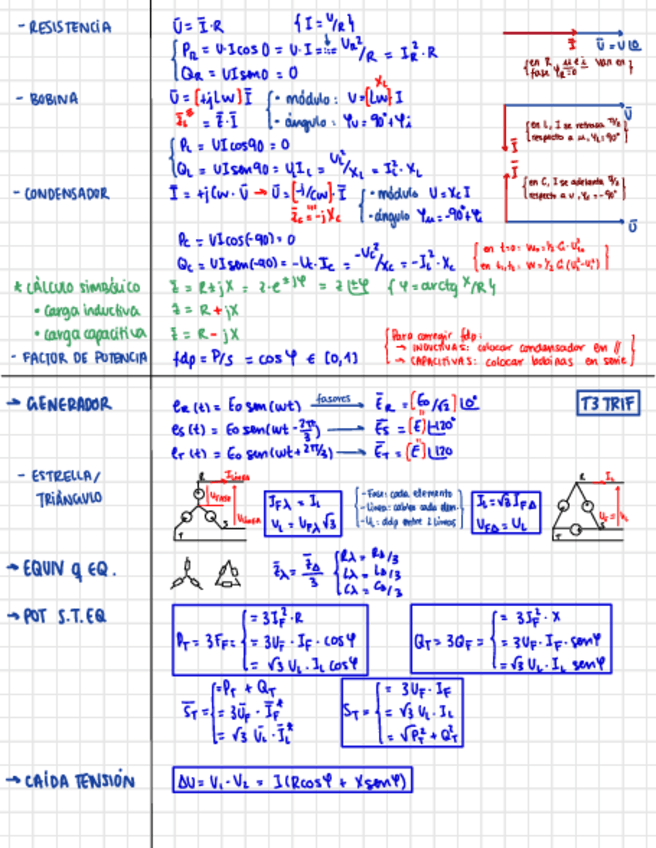 - RESISTENCIA
Ū = Ī·R {I = U/R}
P_R = U·I cos 0 = U·I = U_R²/R = I_R²·R
Q_R = UI sen 0 = 0
Ī Ū = U|0
{en R, u e i van en fase φ_R=0}
- BOBINA
Ū = [+jLw] Ī
= z̄·Ī
• módulo: U = [Lw] I
X_L
• ángulo: φu = 90° + φi
P_L = UI cos 90 = 0
Q_L = UI sen 90 = U I_L = U_L²/X_L = I_L²·X_L
Ū
Ī
{en L, I se retrasa π/2 respecto a u, φ_L=90°}
- CONDENSADOR
Ī = +jCw·Ū → Ū = [-j/Cw]·Ī
z̄c = -jXc
• módulo U = Xc I
• ángulo φu = -90 + φi
Pc = UI cos(-90) = 0
Qc = UI sen(-90) = -Uc·Ic = -Uc²/Xc = -Ic²·Xc
Ī
{en C, I se adelanta π/2 respecto a u, φc=-90°}
Ū
* CÁLCULO SIMBÓLICO
z̄ = R±jX = z·e^±jφ = z|±φ {φ = arctg X/R}
• carga inductiva
z̄ = R+jX
• carga capacitiva
z̄ = R-jX
- FACTOR DE POTENCIA
fdp = P/S = cos φ ∈ [0,1]
Para corregir fdp:
→ INDUCTIVAS: colocar condensador en //
→ CAPACITIVAS: colocar bobinas en serie
→ GENERADOR
e_R(t) = E₀ sen(wt) fasores Ē_R = [E₀/√2] |0°
e_S(t) = E₀ sen(wt - 2π/3) → Ē_S = [E] |-120°
e_T(t) = E₀ sen(wt + 2π/3) → Ē_T = [E] |120
T3 TRIF
- ESTRELLA/
TRIÁNGULO
R I LINEA
U FASE
U LINEA
T S
I_Fλ = I_L
U_L = U_Fλ √3
- Fase: cada elemento
- Línea: cables cada elem.
- U_L: ddp entre 2 líneas
I_L = √3 I_FΔ
U_FΔ = U_L
R I_L
U_F = U_L
T S
→ EQUIV q EQ.
z̄λ = z̄Δ/3
Rλ = RΔ/3
Lλ = LΔ/3
Cλ = CΔ/3
→ POT S.T.EQ
P_T = 3P_F =
= 3I_F²·R
= 3U_F·I_F·cosφ
= √3 U_L·I_L cosφ
Q_T = 3Q_F =
= 3I_F²·X
= 3U_F·I_F·senφ
= √3 U_L·I_L senφ
S̄_T =
= P_T + Q_T
= 3Ū_F·Ī_F*
= √3 Ū_L·Ī_L*
S_T =
= 3U_F·I_F
= √3 U_L·I_L
= √P_T² + Q_T²
→ CAÍDA TENSIÓN
ΔU = V₁ - V₂ = I(Rcosφ + Xsenφ)